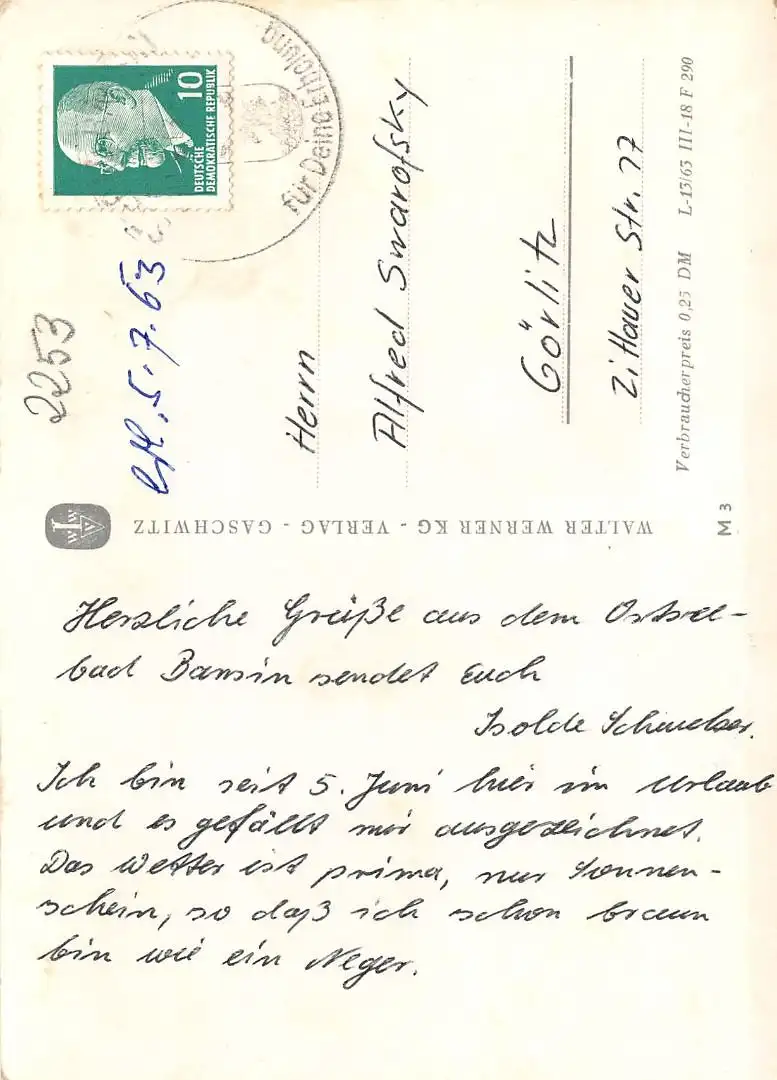 10
DEUTSCHE
DEMOKRATISCHE REPUBLIK
für Deine Erholung
2253
5.7.63
Herrn
Alfred Swarofsky
Görlitz
Zittauer Str. 77
Verbraucherpreis 0,25 DM L-15/63 III-18 F 290
WALTER WERNER KG - VERLAG - GASCHWITZ
M 3
Herzliche Grüße aus dem Ostsee-
bad Bansin sendet Euch
Isolde
Ich bin seit 5. Juni hier im Urlaub
und es gefällt mir ausgezeichnet.
Das Wetter ist prima, nur Sonnen-
schein, so daß ich schon braun
bin wie ein Neger.